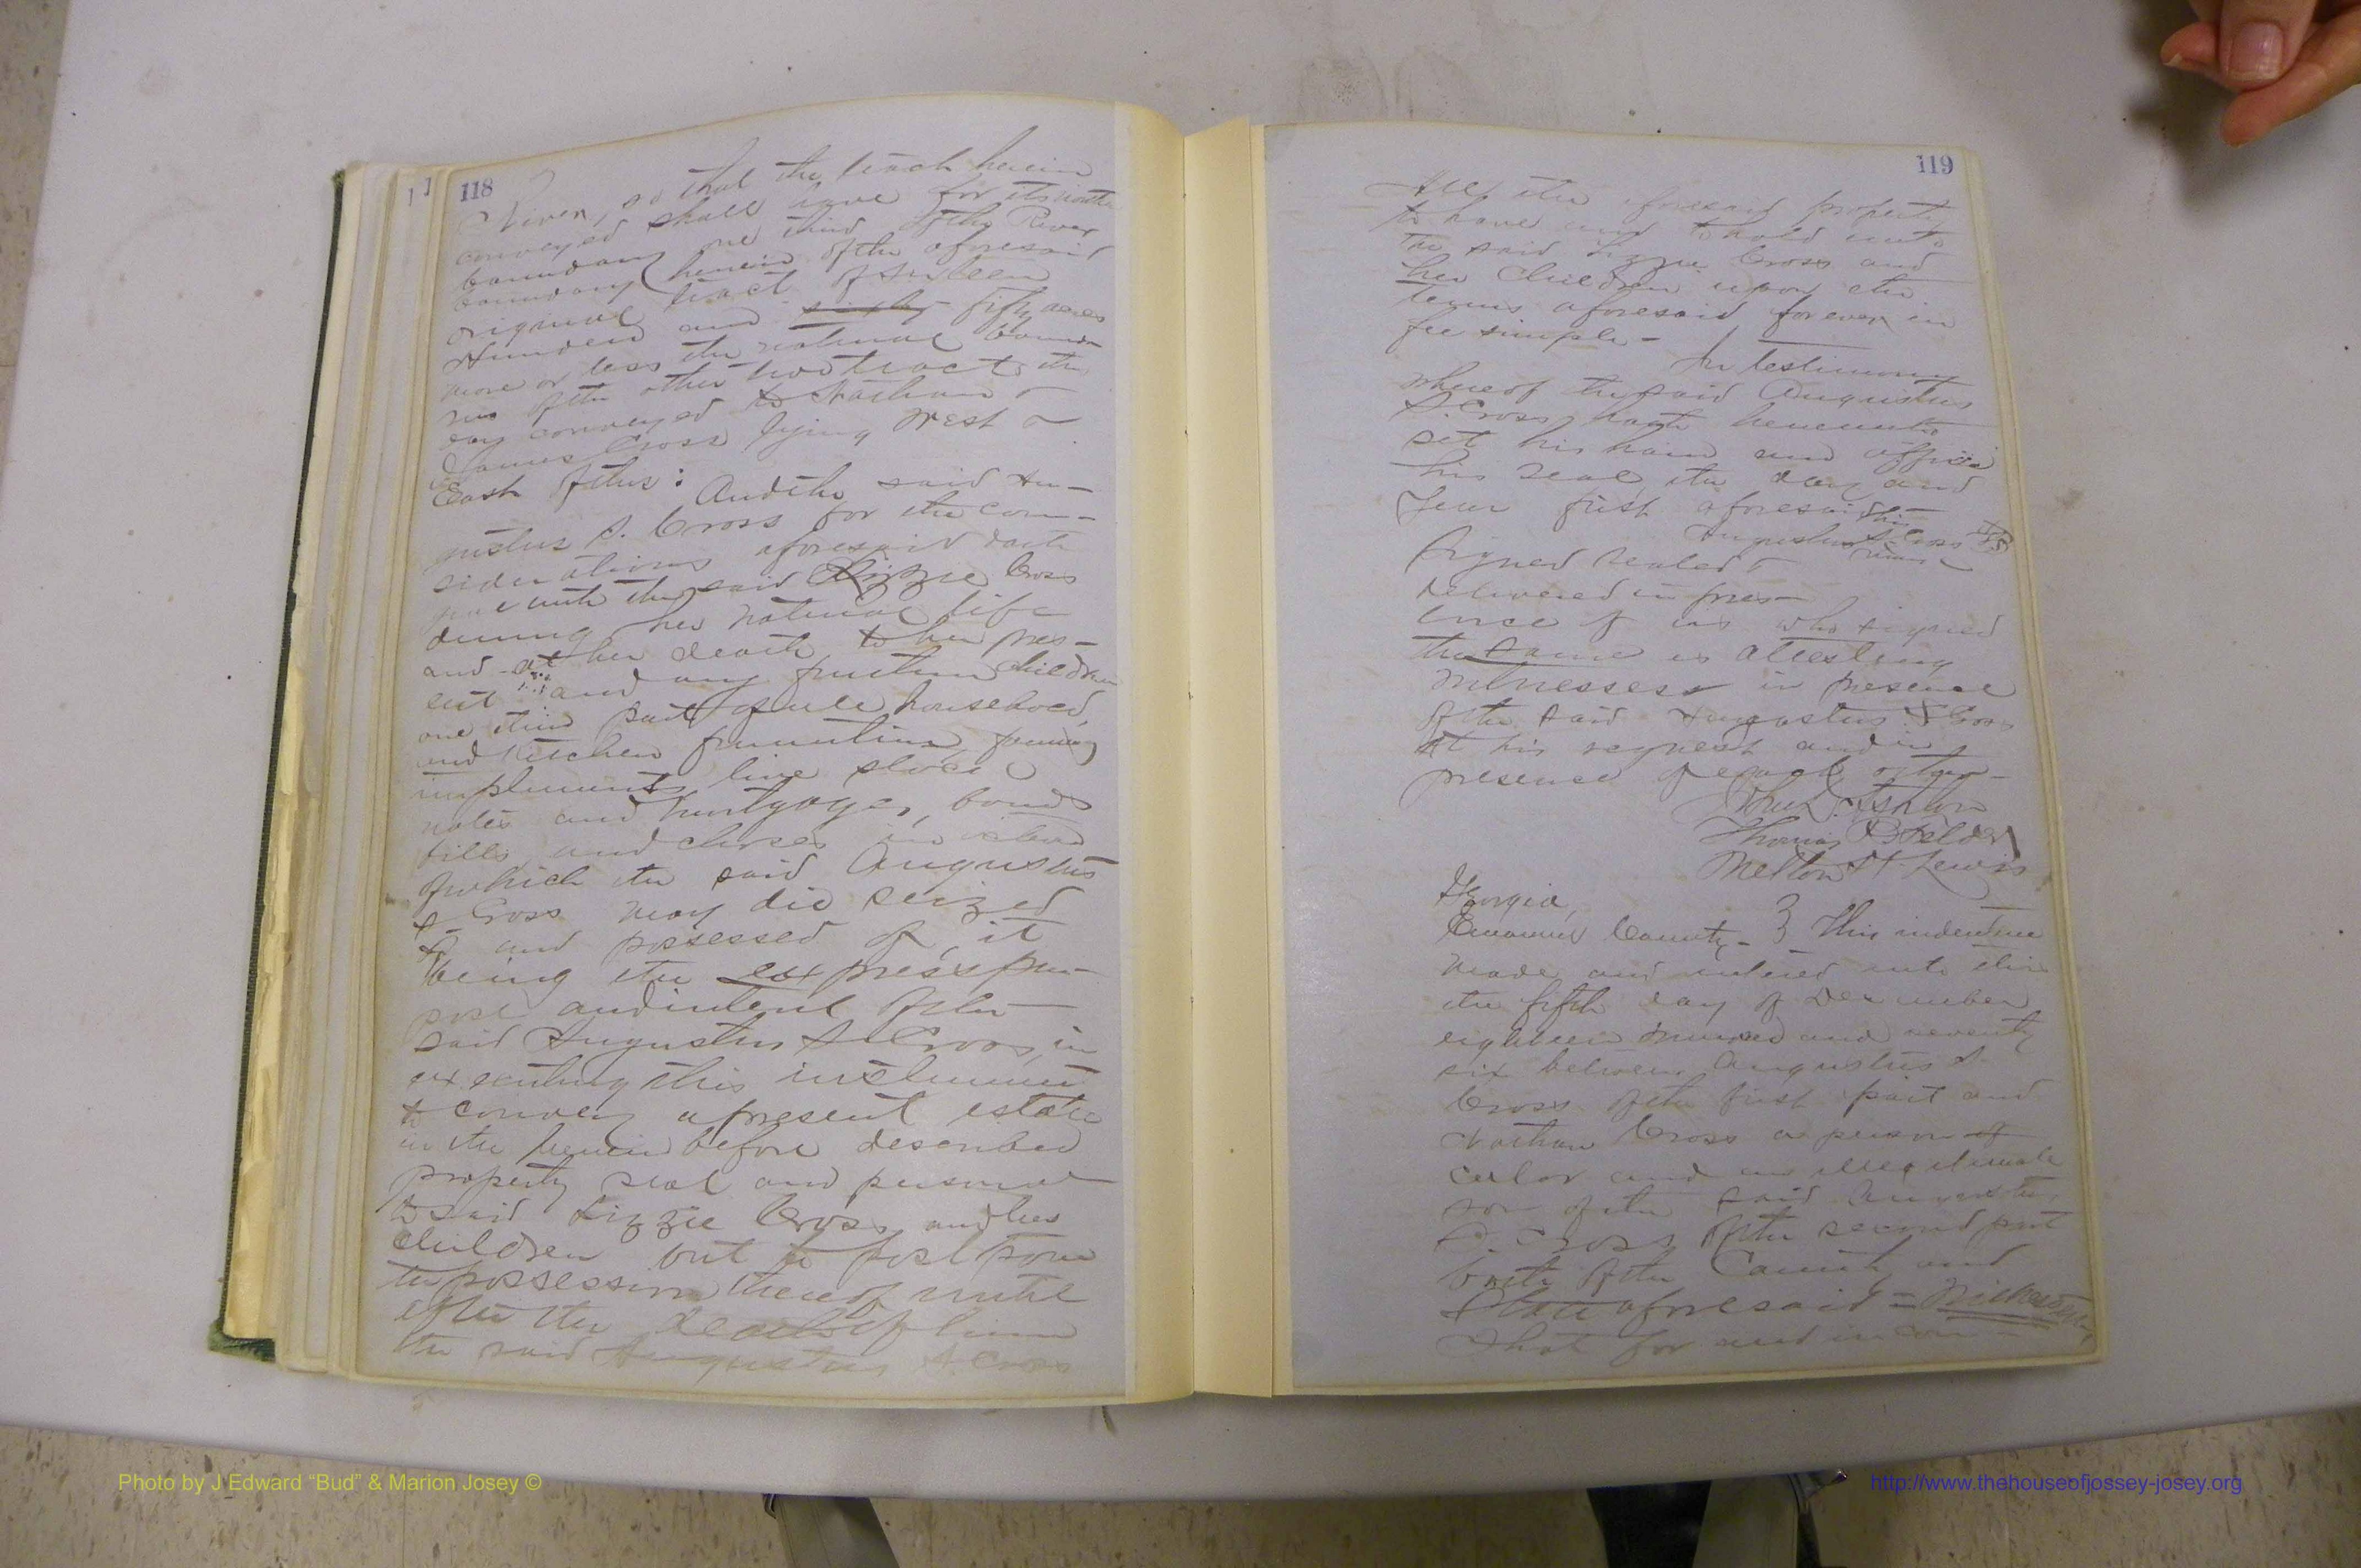 118
River, so that the tract herein
conveyed shall have for its north
boundary one third of the River
boundary (herein of the aforesaid
original tract of Sixteen
Hundred and sixty fifty acres
more or less the natural bounda-
ries of the other two tracts this
day conveyed to Nathan &
James Cross lying West &
East of this: And the said Au-
gustus S. Cross for the con-
siderations aforesaid doth
give unto the said Lizzie Cross
during her natural life
and at her death to her pres-
ent and any future children
one third part of all household,
and kitchen furniture, farming
implements live stock
notes and mortgages, bonds
bills and choses in
of which the said Augustus
S. Cross may die seized
& and possessed of, it
being the express pur-
pose and intent of the
said Augustus S Cross, in
executing this instrument
to convey a present estate
in the herein before described
property real and personal
to said Lizzie Cross and her
children but to postpone
the possession thereof until
after the death of him
the said Augustus S. Cross
119
All the aforesaid property
to have and to hold unto
the said Lizzie Cross and
her Children upon the
terms aforesaid forever in
fee simple -
In testimony
whereof the said Augustus
S. Cross hath hereunto
set his hand and affixed
his seal, the day and
Year first aforesaid -
his
Augustus S. Cross LS
mark
Signed Sealed &
delivered in pres-
ence of us who signed
the same as attesting
witnesses in presence
of the said Augustus S Cross
at his request and in
presence of each other -
John D. Ashton
Thomas B Felder
Melton H. Lewis
Georgia,
Emanuel County - } This indenture
made and entered into this
the fifth day of December
eighteen hundred and seventy
six between Augustus S.
Cross of the first part and
Nathan Cross a person of
color and an illegitimate
son of the said Augustus
S. Cross of the second part
both of the County and
State aforesaid = Witnesseth,
That for and in con -
Photo by J Edward “Bud” & Marion Josey ©
http://www.thehouseofjossey-josey.org